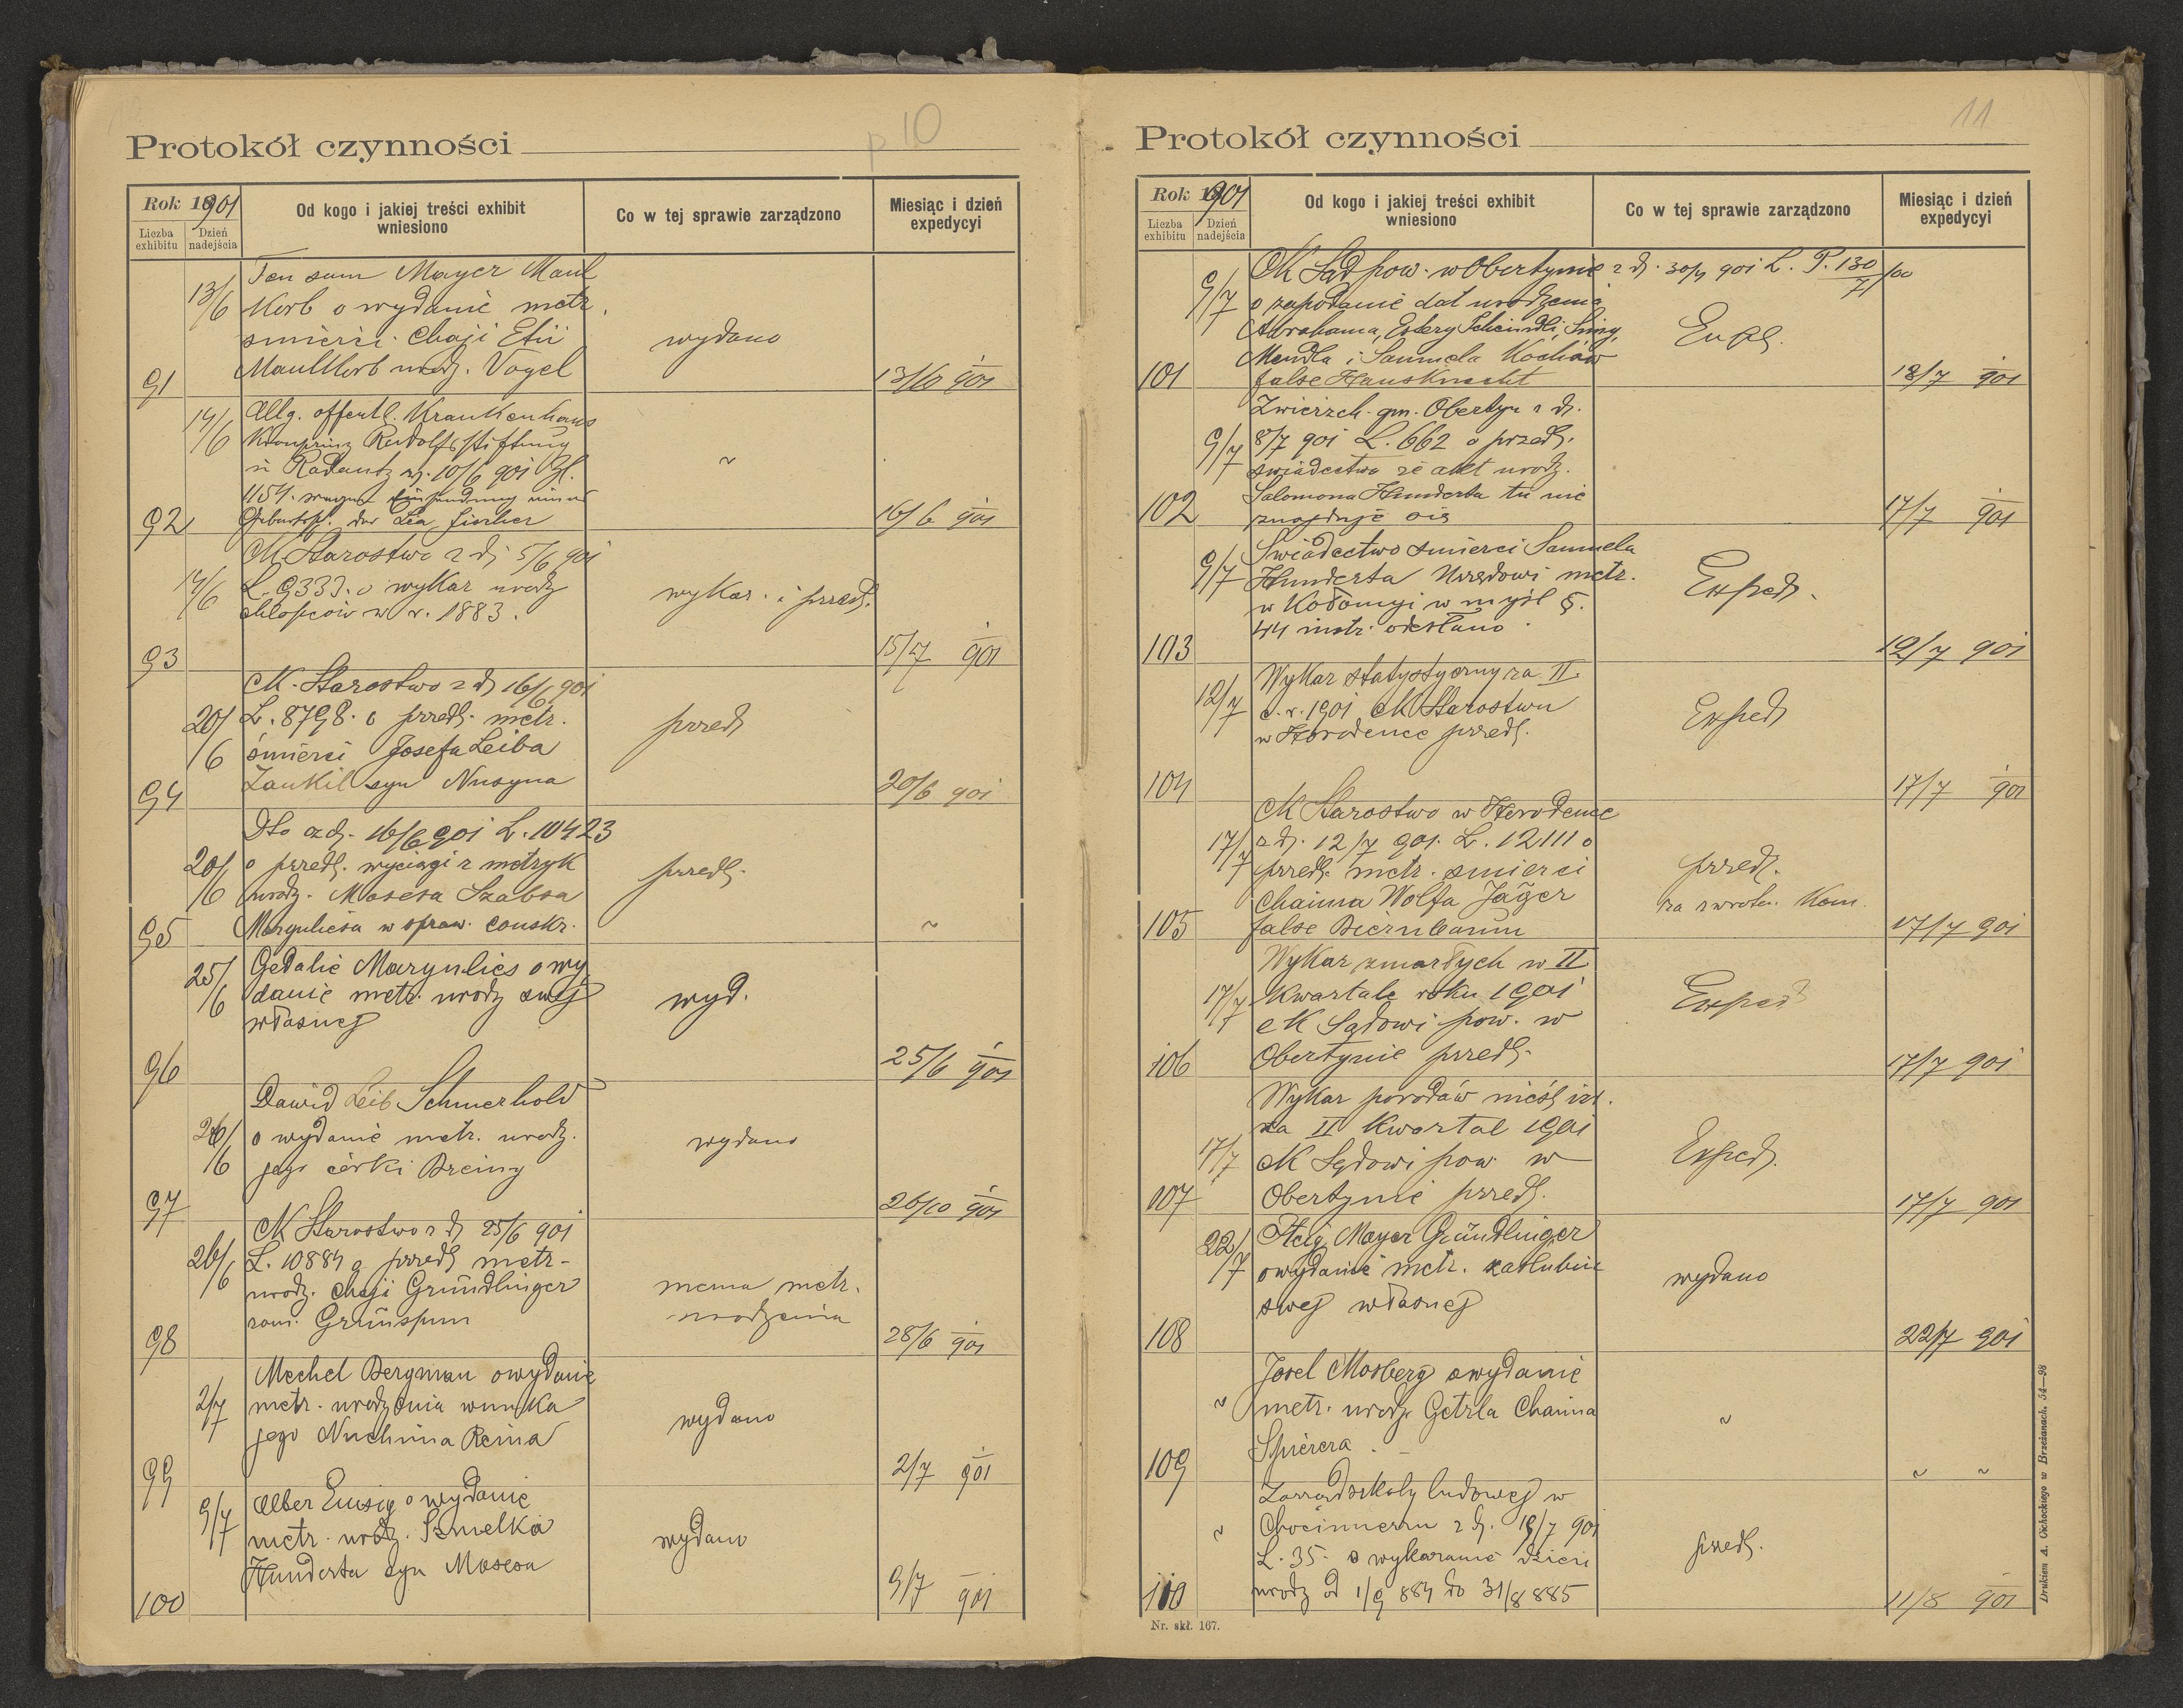 p 10
Protokół czynności
Rok 1901
Liczba exhibitu
Dzień nadejścia
Od kogo i jakiej treści exhibit wniesiono
Co w tej sprawie zarządzono
Miesiąc i dzień expedycyi
13/6
Ten sam Mayer Maul
Korb o wydanie metr.
śmierci Chaji Etii
MaulKorb urodz. Vogel
wydano
91
13/6 901
14/6
Allg. öffentl. Krankenhaus
Kronprinz Rudolfsstiftung
in Radautz dj. 10/6 901 Zl.
1154. wegen Einsendung eines
Geburtssch. der Lea Fischer
~
92
16/6 901
14/6
CK Starostwo z dj 5/6 901
L. 9333. o wykaz urodz
chłopców w r. 1883.
wykaz. i przedł.
93
15/7 901
20/6
CK. Starostwo z dj 16/6 901
L. 8798. o przedł. metr.
śmierci Josefa Leiba
Zaukil syn Nusyna
przedł
94
20/6 901
20/6
Dto z dj. 16/6 901 L. 10423
o przedł. wyciągi z metryk
urodz. Mosesa Szabsa
Marguliesa w spraw. conskr.
przedł.
95
~
25/6
Gedalie Margulies o wy
danie metr. urodz swej
własnej
wyd.
96
25/6 901
26/6
Dawid Leib Schmerhold
o wydanie metr. urodz.
jego córki Breiny
wydano
97
26/6 901
26/6
CK Starostwo z dj 25/6 901
L. 10884 o przedł metr-
urodz. Chaji Gründlinger
zam. Grünspun
niema metr.
urodzenia
98
28/6 901
2/7
Mechel Bergman o wydanie
metr. urodzenia wnuka
jego Nuchima Reina
wydano
99
2/7 901
9/7
Alber Eusig o wydanie
metr. urodz. Szmelka
Hunderta syn Mosesa
wydano
100
9/7 901
11
Protokół czynności
Rok 1901
Liczba exhibitu
Dzień nadejścia
Od kogo i jakiej treści exhibit wniesiono
Co w tej sprawie zarządzono
Miesiąc i dzień expedycyi
9/7
CK Sąd pow. w Obertynie z dj. 30/4 901 L. P. 130/7 /00
o zapodanie dat urodzenia
Abrahama, Estery Scheindli,
Mendla i Samuela Kochów
false Hausknecht
101
18/7 901
9/7
Zwierzch. gm. Obertyn z dj.
8/7 901 L. 662 o przedł.
świadectwa że akt urodz.
Salomona Hunderta tu nie
znajduje się
102
17/7 901
9/7
Świadectwo śmierci Samuela
Hunderta Urzędowi metr.
w Kołomyi w myśl §.
44 instr. odesłano.
Exped.
103
12/7 901
12/7
Wykaz statystyczny za II
c. r. 1901 CK Starostwu
w Horodence przedł.
Exped
104
17/7 901
17/7
CK Starostwo w Horodence
z dj. 12/7 901. L. 12111 o
przedł. metr. śmierci
Chaima Wolfa Jäger
false Biernbaum
przedł.
za zwrotn. Kom.
105
17/7 901
17/7
Wykaz zmarłych w II
Kwartale roku 1901
CK Sądowi pow. w
Obertynie przedł.
Exped
106
17/7 901
17/7
Wykaz porodów nieśl izr.
za II Kwartal 1901
CK Sądowi pow w
Obertynie przedł.
Exped.
107
17/7 901
22/7
Mayer Gründlinger
o wydanie metr. zaślubin
swej własnej
wydano
108
22/7 901
~
Josel Mosberg o wydanie
metr. urodz. Getzla Chaima
Spierera.
~
109
~ ~
~
Zarząd szkoły ludowej w
Chocimierzu z dj. 19/7 901
L. 35. o wykazanie dzieci
urodz od 1/9 884 do 31/8 885
przedł.
110
11/8 901
Nr. skł. 167.
Drukiem A. Cichockiego w Brzeżanach. 54—98